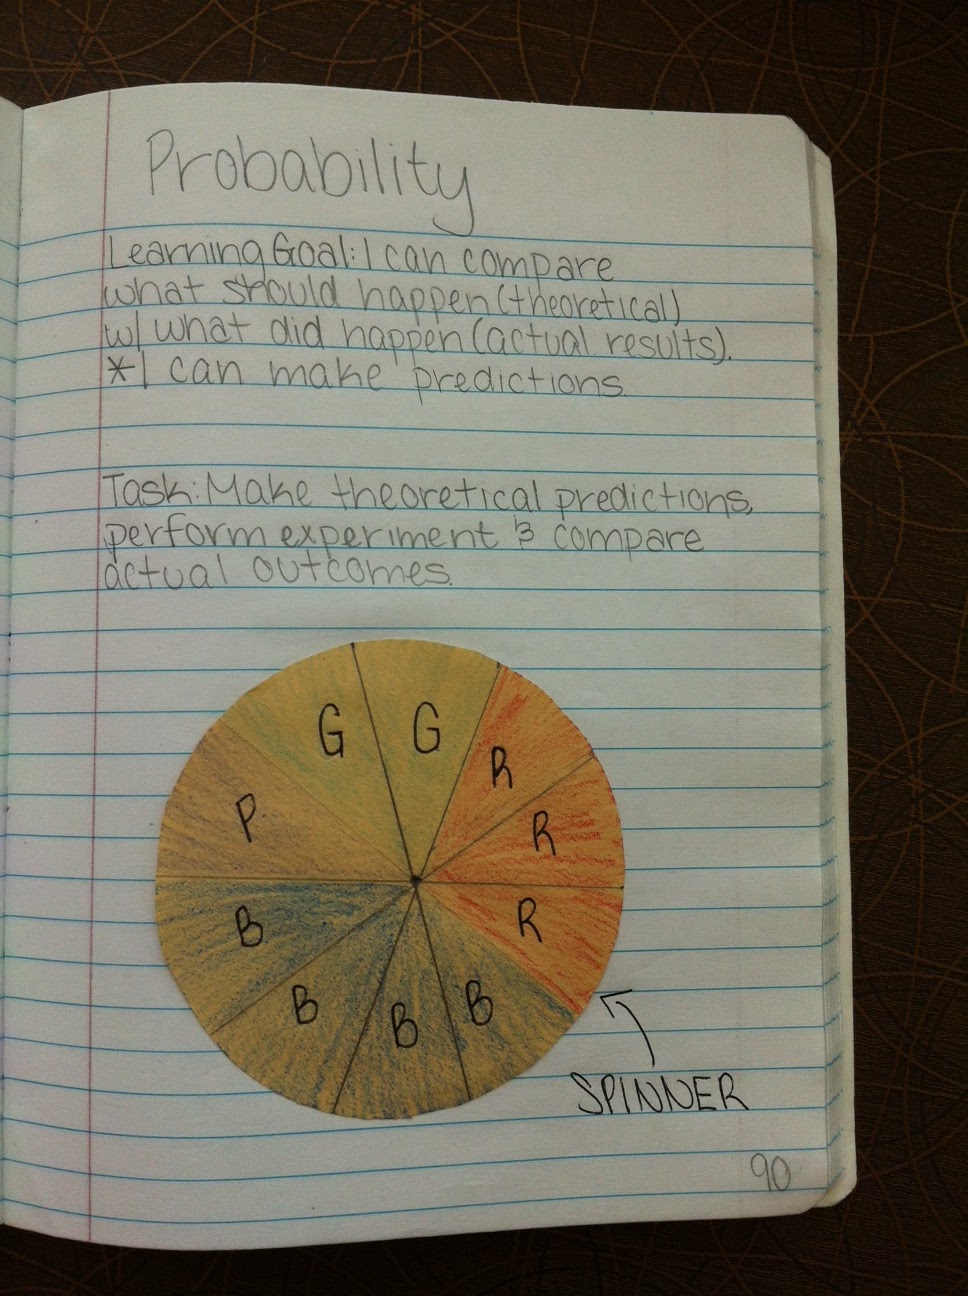 Probability
Learning Goal: I can compare
what should happen (theoretical)
w/ what did happen (actual results).
*I can make predictions.
Task: Make theoretical predictions,
perform experiment & compare
actual outcomes.
G G
R
P R
B R
B B B
SPINNER
90